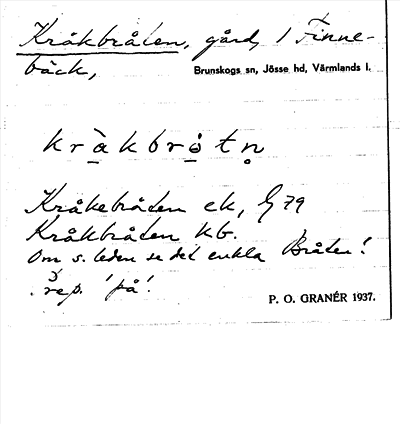 Kråkbråten, gård, 1 Finne-
bäck,
Brunskogs sn, Jösse hd, Värmlands l.
kràkbrotn
Kråkebråten ek, G 79
Kråkbråten kb.
Om s. leden se det enkla Bråten!
rep. 'på'.
P. O. GRANÉR 1937.